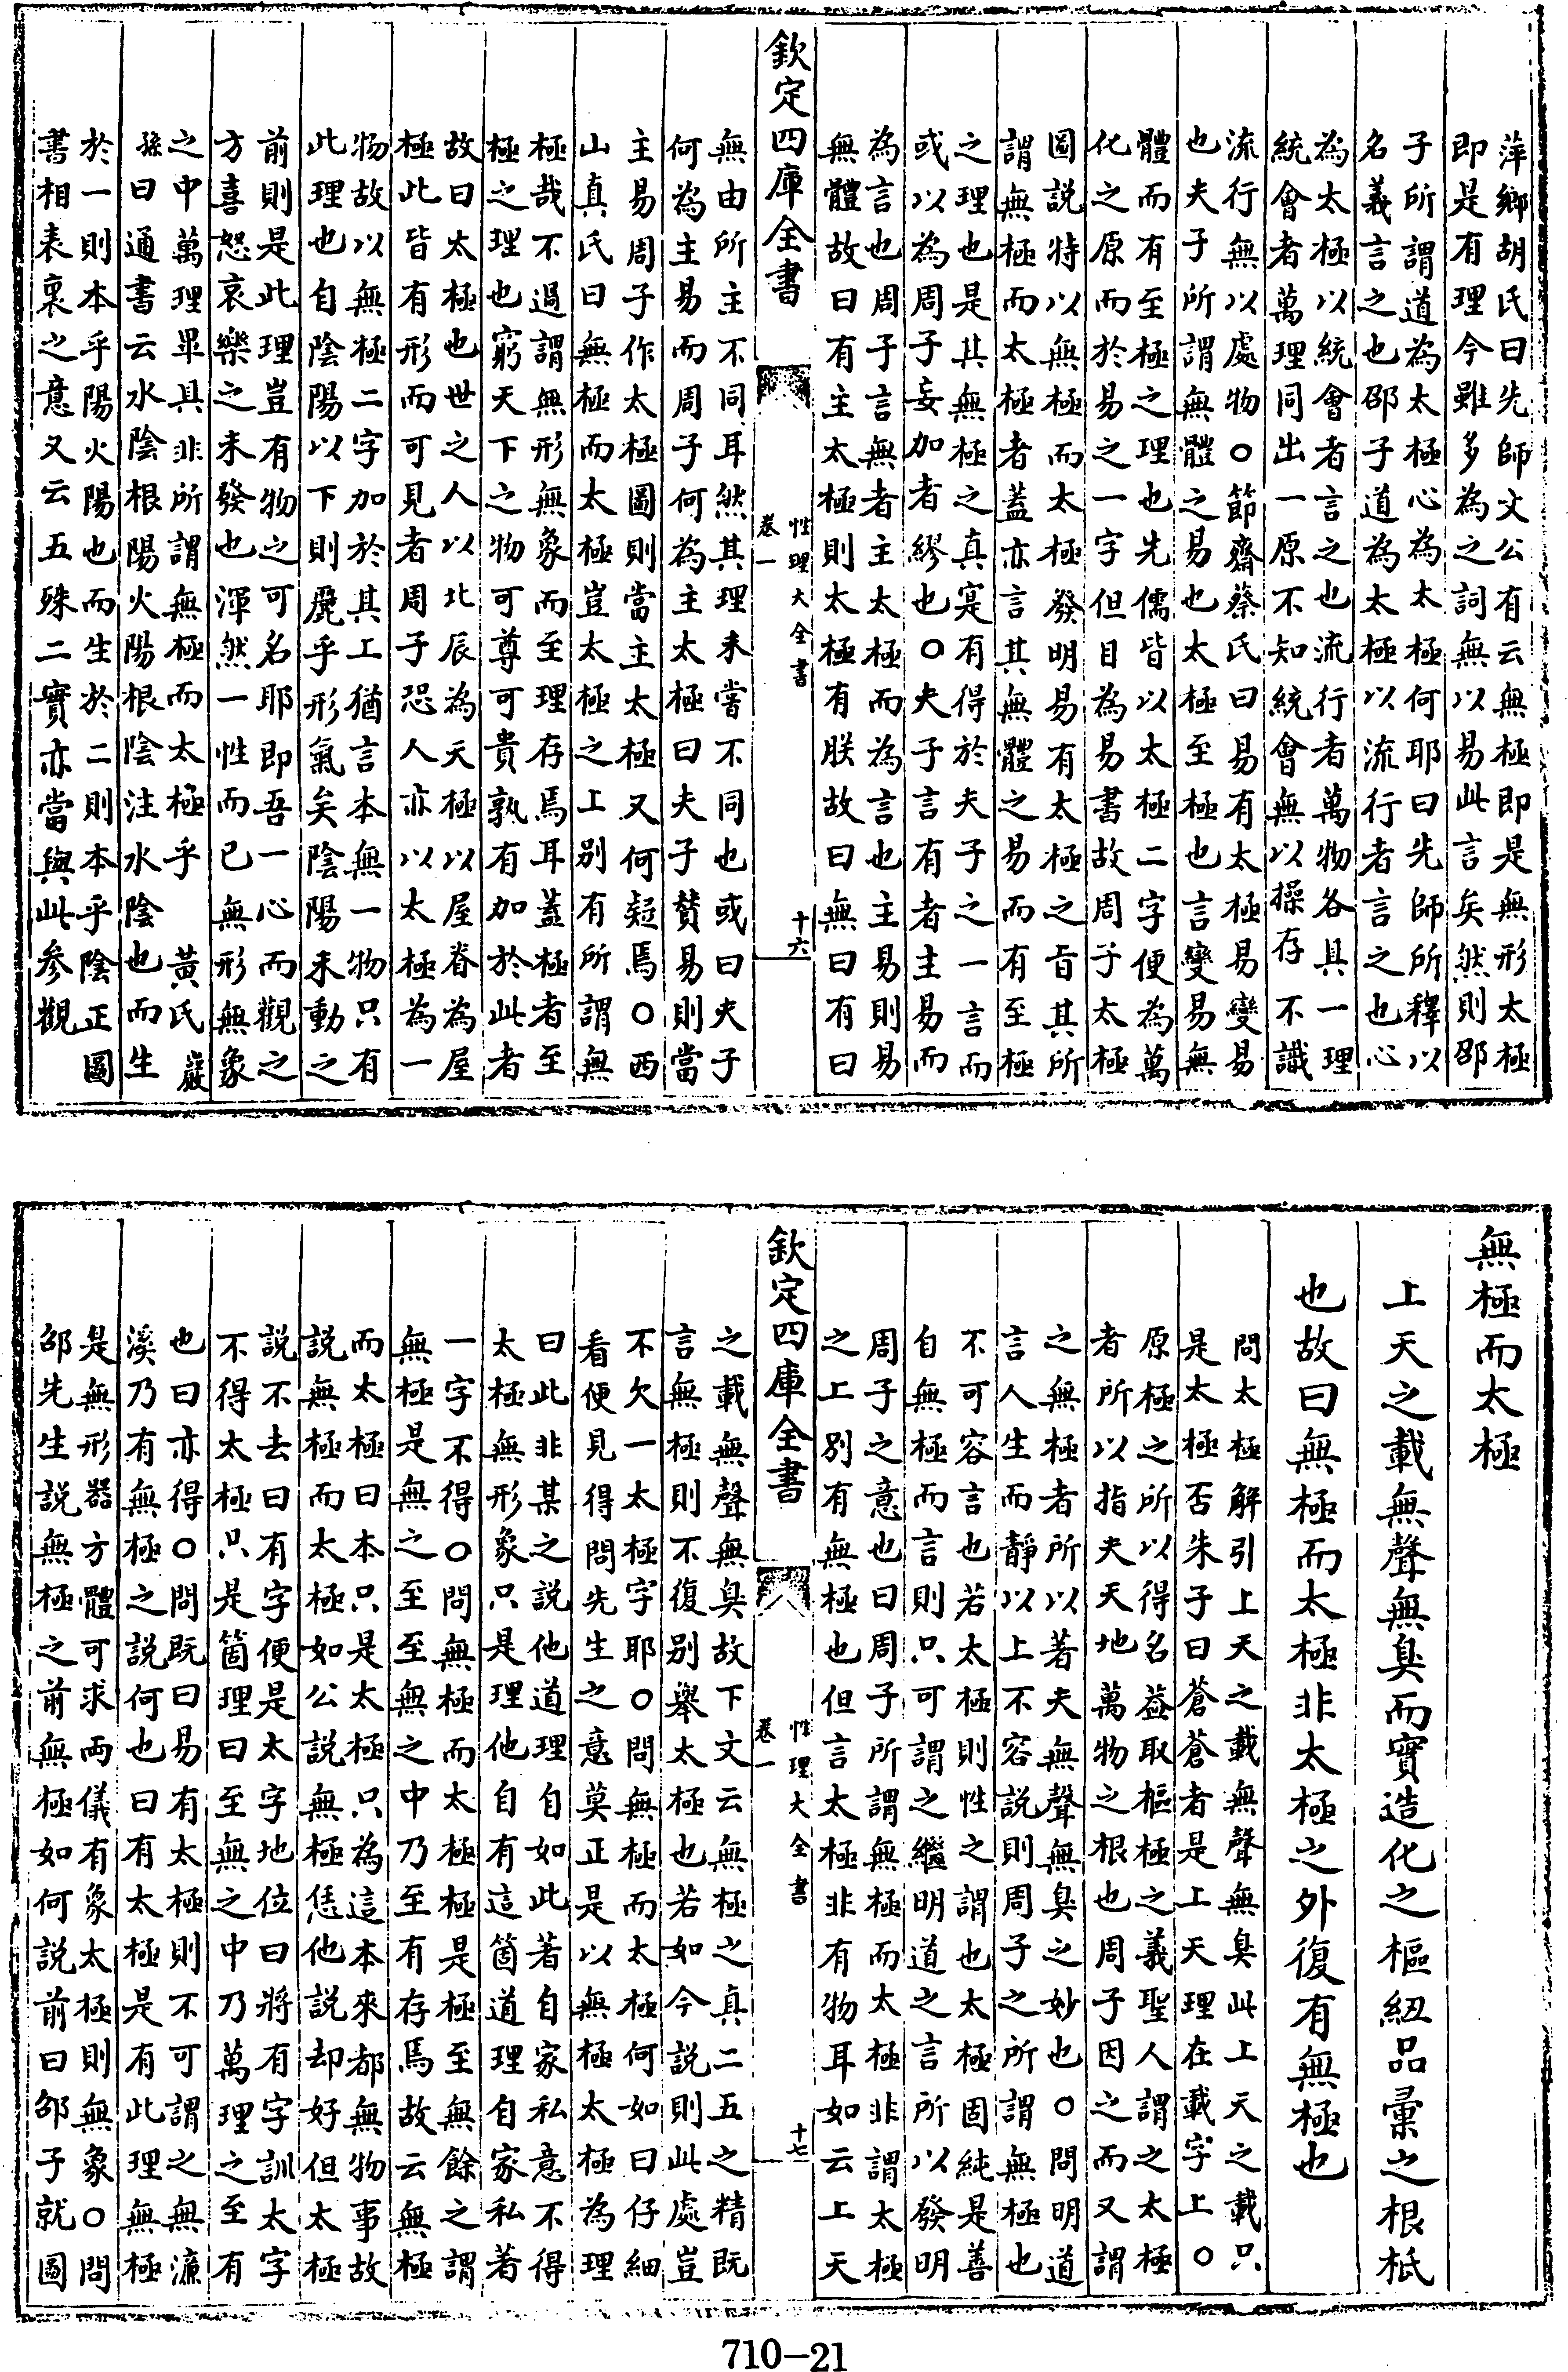 萍鄉胡氏曰先師文公有云無極即是無形太極
即是有理今雖多為之詞無以易此言矣然則邵
子所謂道為太極心為太極何耶曰先師所釋以
名義言之也邵子道為太極以流行者言之也心
為太極以統會者言之也流行者萬物各具一理
統會者萬理同出一原不知統會無以操存不識
流行無以處物○節齋蔡氏曰易有太極易變易
也夫子所謂無體之易也太極至極也言變易無
體而有至極之理也先儒皆以太極二字便為萬
化之原而於易之一字但目為易書故周子太極
圖説特以無極而太極發明易有太極之旨其所
謂無極而太極者蓋亦言其無體之易而有至極
之理也是其無極之真寔有得於夫子之一言而
或以為周子妄加者繆也○夫子言有者主易而
為言也周子言無者主太極而為言也主易則易
無體故曰有主太極則太極有朕故曰無曰有曰
欽定四庫全書
性理大全書
卷一
十六
無由所主不同耳然其理未嘗不同也或曰夫子
何為主易而周子何為主太極曰夫子賛易則當
主易周子作太極圖則當主太極又何疑焉○西
山真氏曰無極而太極豈太極之上別有所謂無
極哉不過謂無形無象而至理存焉耳蓋極者至
極之理也窮天下之物可尊可貴孰有加於此者
故曰太極也世之人以北辰為天極以屋脊為屋
極此皆有形而可見者周子恐人亦以太極為一
物故以無極二字加於其工猶言本無一物只有
此理也自陰陽以下則麗乎形氣矣陰陽未動之
前則是此理豈有物之可名耶即吾一心而觀之
方喜怒哀樂之未發也渾然一性而已無形無象
之中萬理畢具非所謂無極而太極乎 黃氏巖
孫曰通書云水陰根陽火陽根陰注水陰也而生
於一則本乎陽火陽也而生於二則本乎陰正圖
書相表裏之意又云五殊二實亦當與此參觀
無極而太極
上天之載無聲無臭而實造化之樞紐品彙之根柢
也故曰無極而太極非太極之外復有無極也
問太極解引上天之載無聲無臭此上天之載只
是太極否朱子曰蒼蒼者是上天理在載字上○
原極之所以得名蓋取樞極之義聖人謂之太極
者所以指夫天地萬物之根也周子因之而又謂
之無極者所以著夫無聲無臭之妙也○問明道
言人生而靜以上不容説則周子之所謂無極也
不可容言也若太極則性之謂也太極固純是善
自無極而言則只可謂之繼明道之言所以發明
周子之意也曰周子所謂無極而太極非謂太極
之上別有無極也但言太極非有物耳如云上天
欽定四庫全書
性理大全書
卷一
十七
之載無聲無臭故下文云無極之真二五之精既
言無極則不復別舉太極也若如今説則此處豈
不欠一太極字耶○問無極而太極何如曰仔細
看便見得問先生之意莫正是以無極太極為理
曰此非某之説他道理自如此著自家私意不得
太極無形象只是理他自有這箇道理自家私著
一字不得○問無極而太極極是極至無餘之謂
無極是無之至至無之中乃至有存焉故云無極
而太極曰本只是太極只為這本來都無物事故
説無極而太極如公説無極恁他説却好但太極
説不去曰有字便是太字地位曰將有字訓太字
不得太極只是箇理曰至無之中乃萬理之至有
也曰亦得○問既曰易有太極則不可謂之無濂
溪乃有無極之説何也曰有太極是有此理無極
是無形器方體可求兩儀有象太極則無象○問
邵先生説無極之前無極如何説前曰邵子就圖
710-21